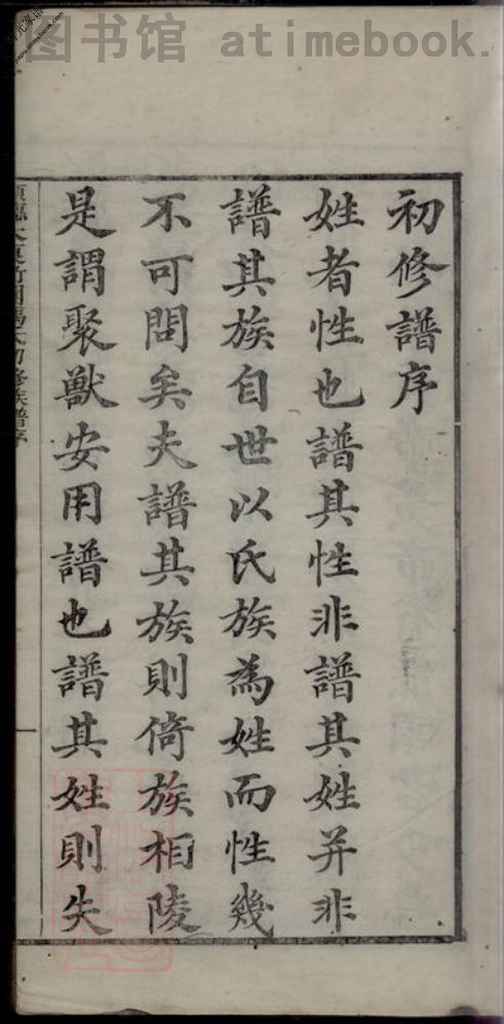 图书馆 atimebook.
初修譜序
姓者性也譜其性非譜其姓并非
譜其族自世以氏族為姓而性幾
不可問矣夫譜其族則倚族相陵
是謂聚獸安用譜也譜其姓則失
修族譜序